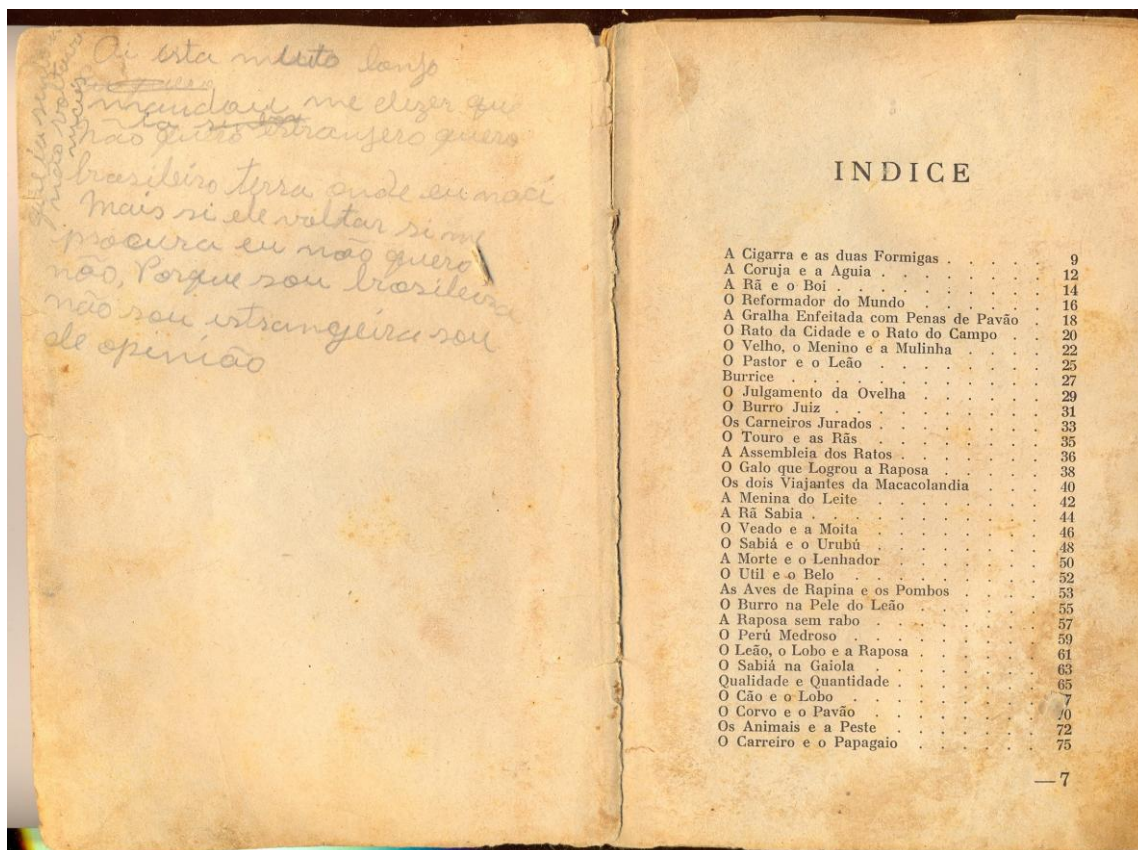 Oi esta muito lonjo
mandou me dizer que
não quero estranjero quero
brasileiro terra onde eu naci
Mais si ele voltar si me
procura eu não quero
não, Porque sou brasileira
não sou estrangeira sou
de opinião
não voltair
mais
INDICE
A Cigarra e as duas Formigas . . . . . 9
A Coruja e a Aguia . . . . . . . . 12
A Rã e o Boi . . . . . . . . . . 14
O Reformador do Mundo . . . . . . 16
A Gralha Enfeitada com Penas de Pavão . 18
O Rato da Cidade e o Rato do Campo . . 20
O Velho, o Menino e a Mulinha . . . . 22
O Pastor e o Leão . . . . . . . . 25
Burrice . . . . . . . . . . . . 27
O Julgamento da Ovelha . . . . . . 29
O Burro Juiz . . . . . . . . . . 31
Os Carneiros Jurados . . . . . . . . 33
O Touro e as Rãs . . . . . . . . 35
A Assembleia dos Ratos . . . . . . . 36
O Galo que Logrou a Raposa . . . . . 38
Os dois Viajantes da Macacolandia . . . 40
A Menina do Leite . . . . . . . . 42
A Rã Sabia . . . . . . . . . . . 44
O Veado e a Moita . . . . . . . . 46
O Sabiá e o Urubú . . . . . . . . 48
A Morte e o Lenhador . . . . . . . 50
O Util e o Belo . . . . . . . . . 52
As Aves de Rapina e os Pombos . . . . 53
O Burro na Pele do Leão . . . . . . 55
A Raposa sem rabo . . . . . . . . 57
O Perú Medroso . . . . . . . . . 59
O Leão, o Lobo e a Raposa . . . . . . 61
O Sabiá na Gaiola . . . . . . . . 63
Qualidade e Quantidade . . . . . . . 65
O Cão e o Lobo . . . . . . . . . 7
O Corvo e o Pavão . . . . . . . . 70
Os Animais e a Peste . . . . . . . 72
O Carreiro e o Papagaio . . . . . . 75
—7